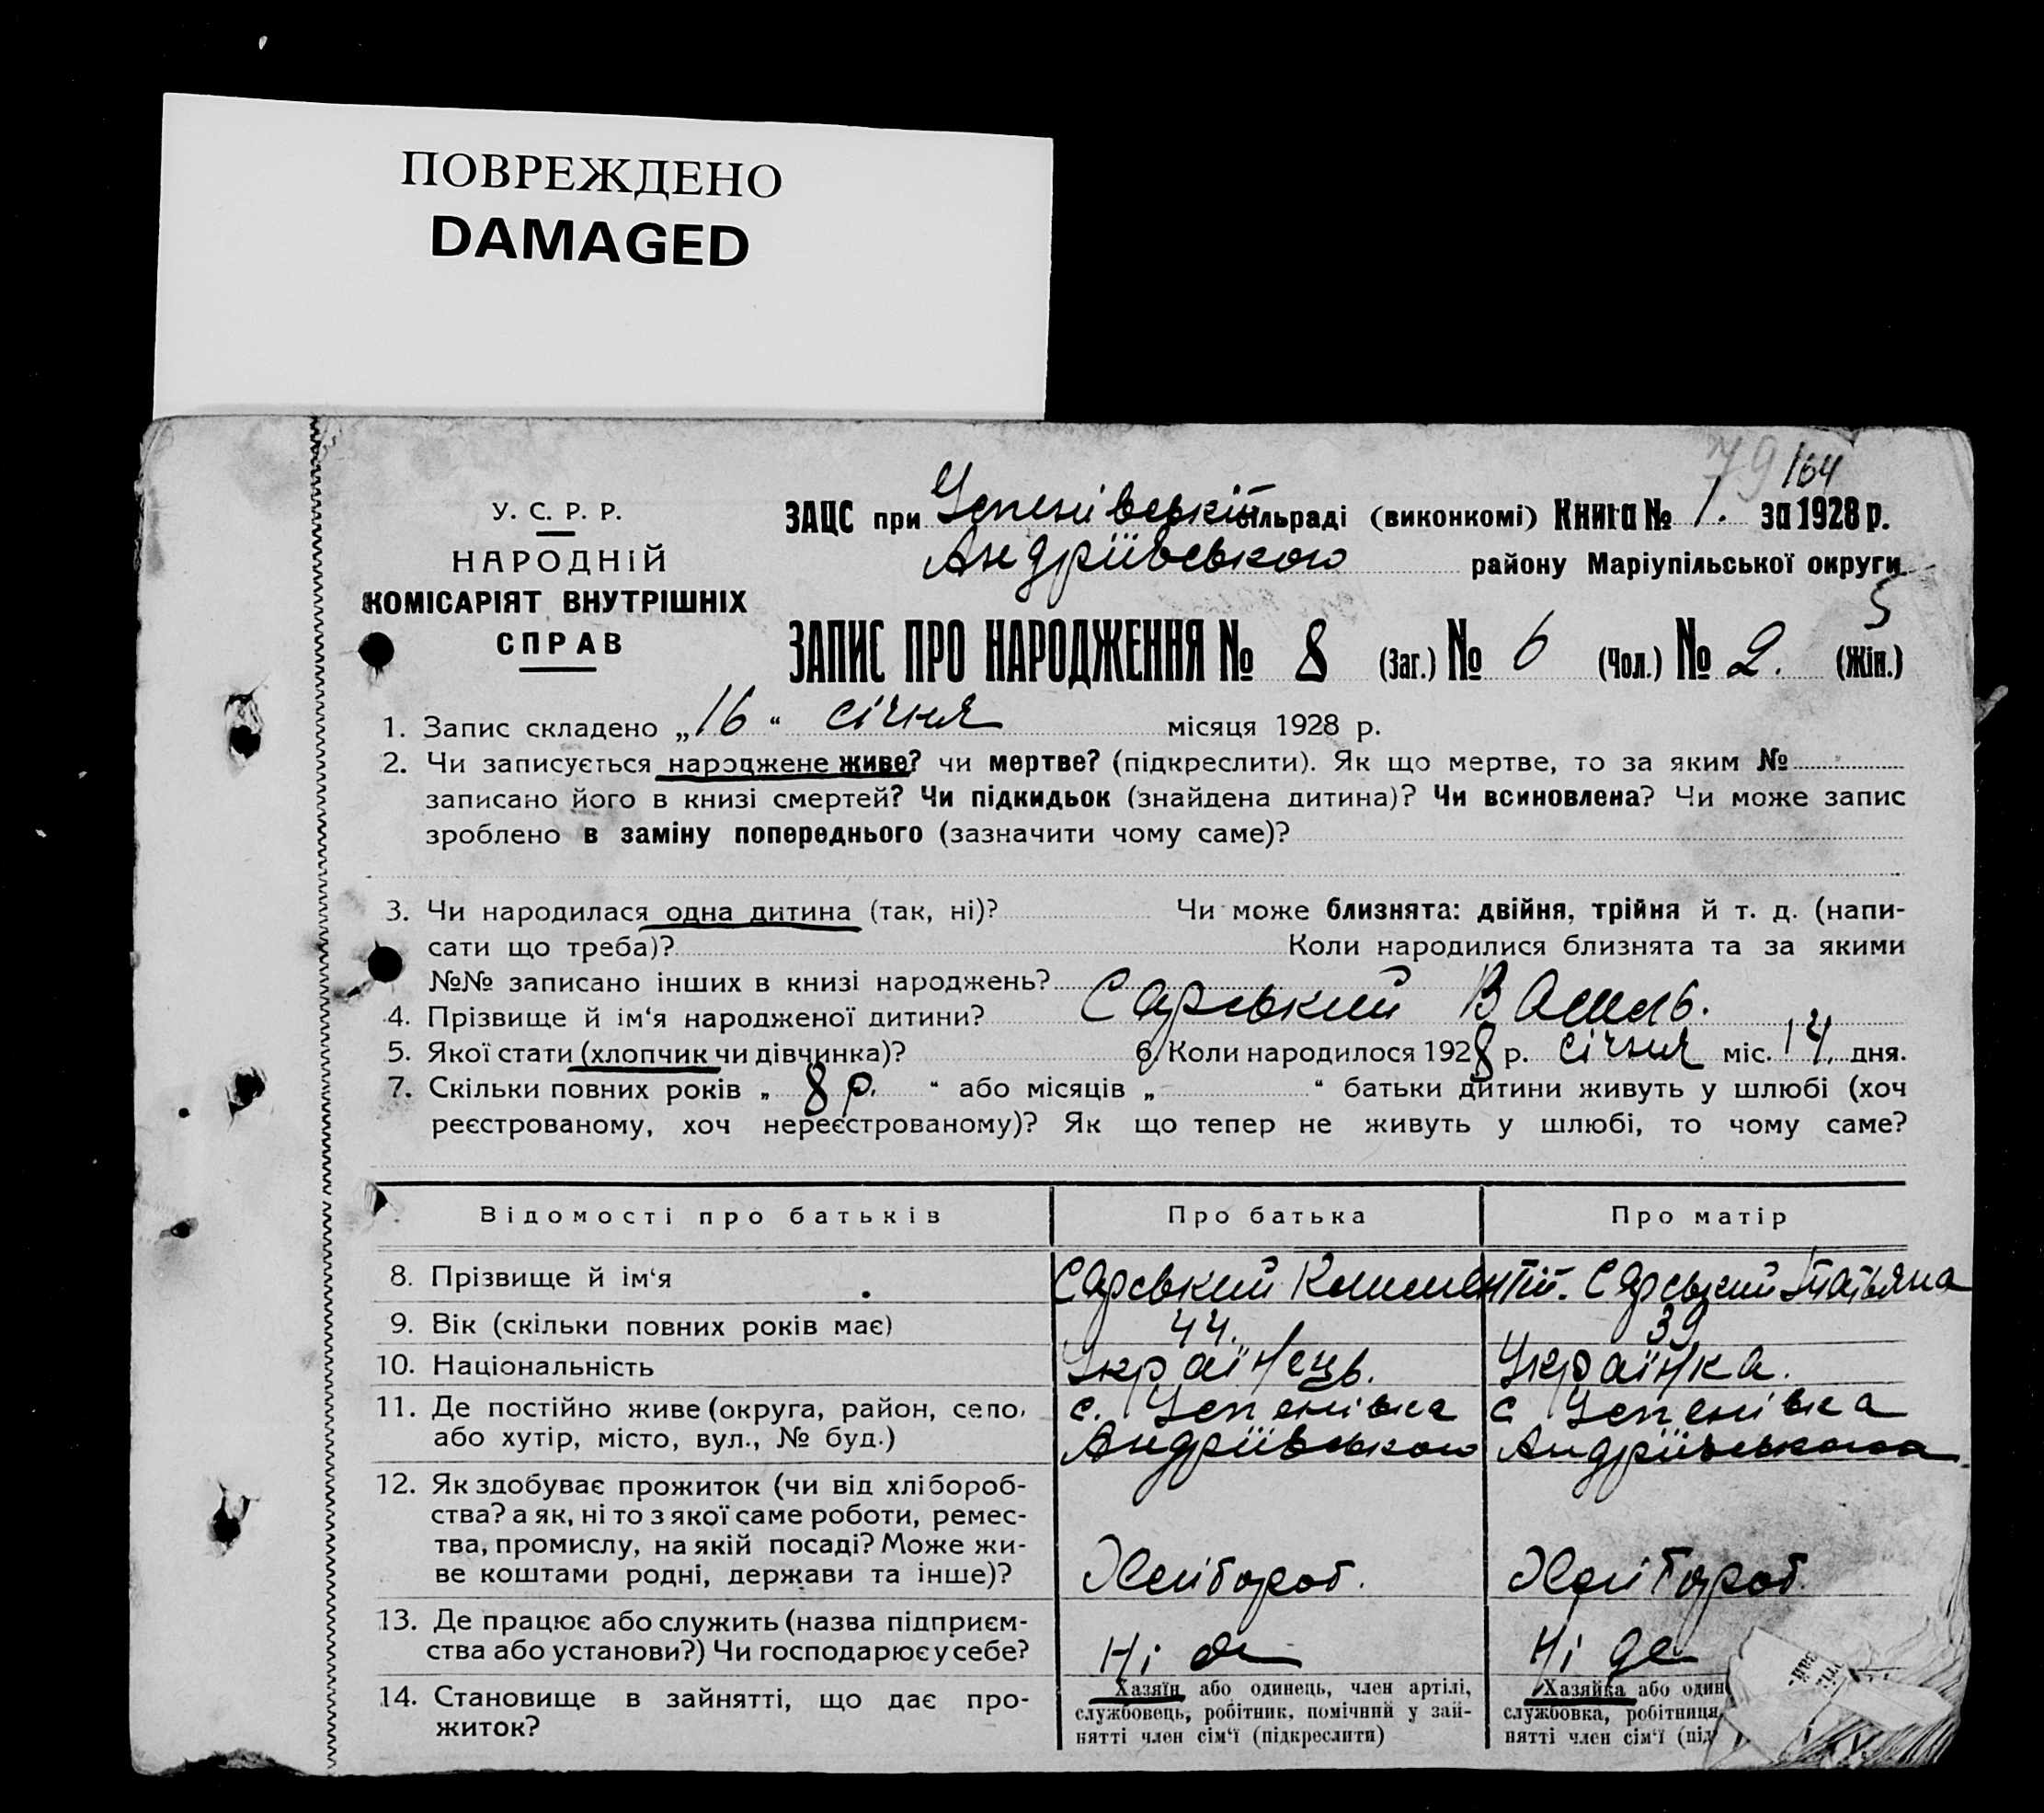 ПОВРЕЖДЕНО
DAMAGED
79 164
У. С. Р. Р.
НАРОДНІЙ
КОМІСАРІЯТ ВНУТРІШНІХ
СПРАВ
ЗАЦС при Успенівській сільраді (виконкомі) Книга № 1. за 1928 р.
Андріївського району Маріупільської округи
5
ЗАПИС ПРО НАРОДЖЕННЯ № 8 (Заг.) № 6 (Чол.) № 2. (Жін.)
1. Запис складено „16“ січня місяця 1928 р.
2. Чи записується народжене живе? чи мертве? (підкреслити). Як що мертве, то за яким №
записано його в книзі смертей? Чи підкидьок (знайдена дитина)? Чи всиновлена? Чи може запис
зроблено в заміну попереднього (зазначити чому саме)?
3. Чи народилася одна дитина (так, ні)? Чи може близнята: двійня, трійня й т. д. (напи-
сати що треба)? Коли народилися близнята та за якими
№№ записано інших в книзі народжень?
4. Прізвище й ім‘я народженої дитини? Сарський Василь.
5. Якої стати (хлопчик чи дівчинка)? 6. Коли народилося 1928 р. січня міс. 14. дня.
7. Скільки повних років „ 8 р. “ або місяців „ “ батьки дитини живуть у шлюбі (хоч
реєстрованому, хоч нереєстрованому)? Як що тепер не живуть у шлюбі, то чому саме?
Відомості про батьків Про батька Про матір
8. Прізвище й ім‘я Сарський Климентій. Сарський Татьяна
9. Вік (скільки повних років має) 44. 39
10. Національність Українець. Українка.
11. Де постійно живе (округа, район, село, с. Успенівка с Успенівка
або хутір, місто, вул., № буд.) Андріївського Андріївського
12. Як здобуває прожиток (чи від хлібороб-
ства? а як, ні то з якої саме роботи, ремес-
тва, промислу, на якій посаді? Може жи-
ве коштами родні, держави та інше)? Хлібороб. Хлібороб.
13. Де працює або служить (назва підприєм-
ства або установи?) Чи господарює у себе? Ні де Ні де
14. Становище в зайнятті, що дає про-
житок?
Хазяїн або одинець, член артілі,
службовець, робітник, помічний у зай-
нятті член сім‘ї (підкреслити)
Хазяйка або один
службовка, робітниця,
нятті член сім‘ї (під